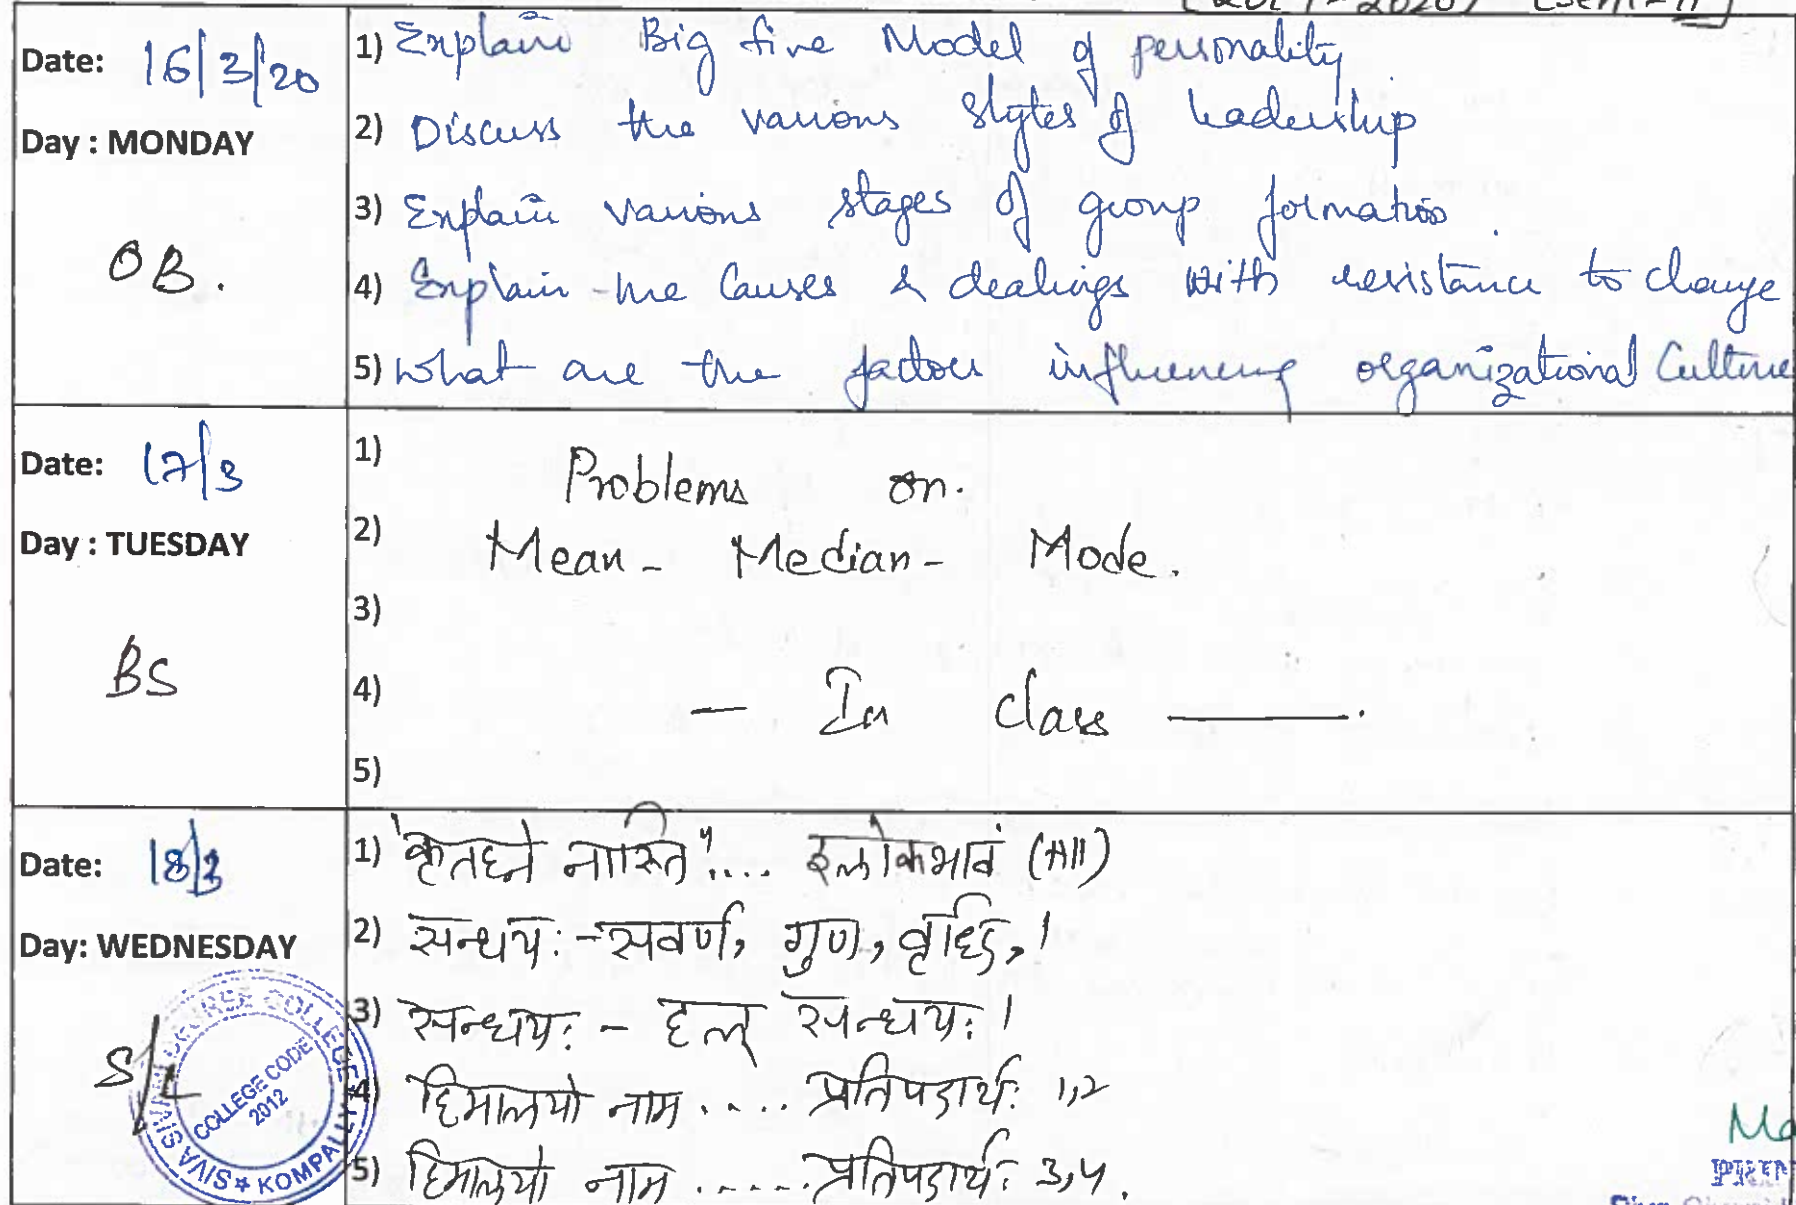 2020) [SEM-II]
Date: 16/3/20
Day : MONDAY
OB.
1) Explain Big five Model of personality.
2) Discuss the various styles of leadership
3) Explain various stages of group formation.
4) Explain the Causes & dealings with resistance to change
5) what are the factors influencing organizational Culture
Date: 17/3
Day : TUESDAY
BS
1)
Problems on.
2)
Mean - Median - Mode.
3)
4)
— In class ———.
5)
Date: 18/3
Day: WEDNESDAY
S/L
1) "कृतघ्ने नास्ति".... श्लोकभावं
2) सन्धयः - सवर्ण, गुण, वृद्धि, ।
3) सन्धयः - हल् सन्धयः ।
4) हिमालयो नाम ..... प्रतिपदार्थः 1,2
5) हिमालयो नाम ...... प्रतिपदार्थः 3,4.
SIVA SIVANIS DEGREE COLLEGE * KOMPALLY
COLLEGE CODE
2012